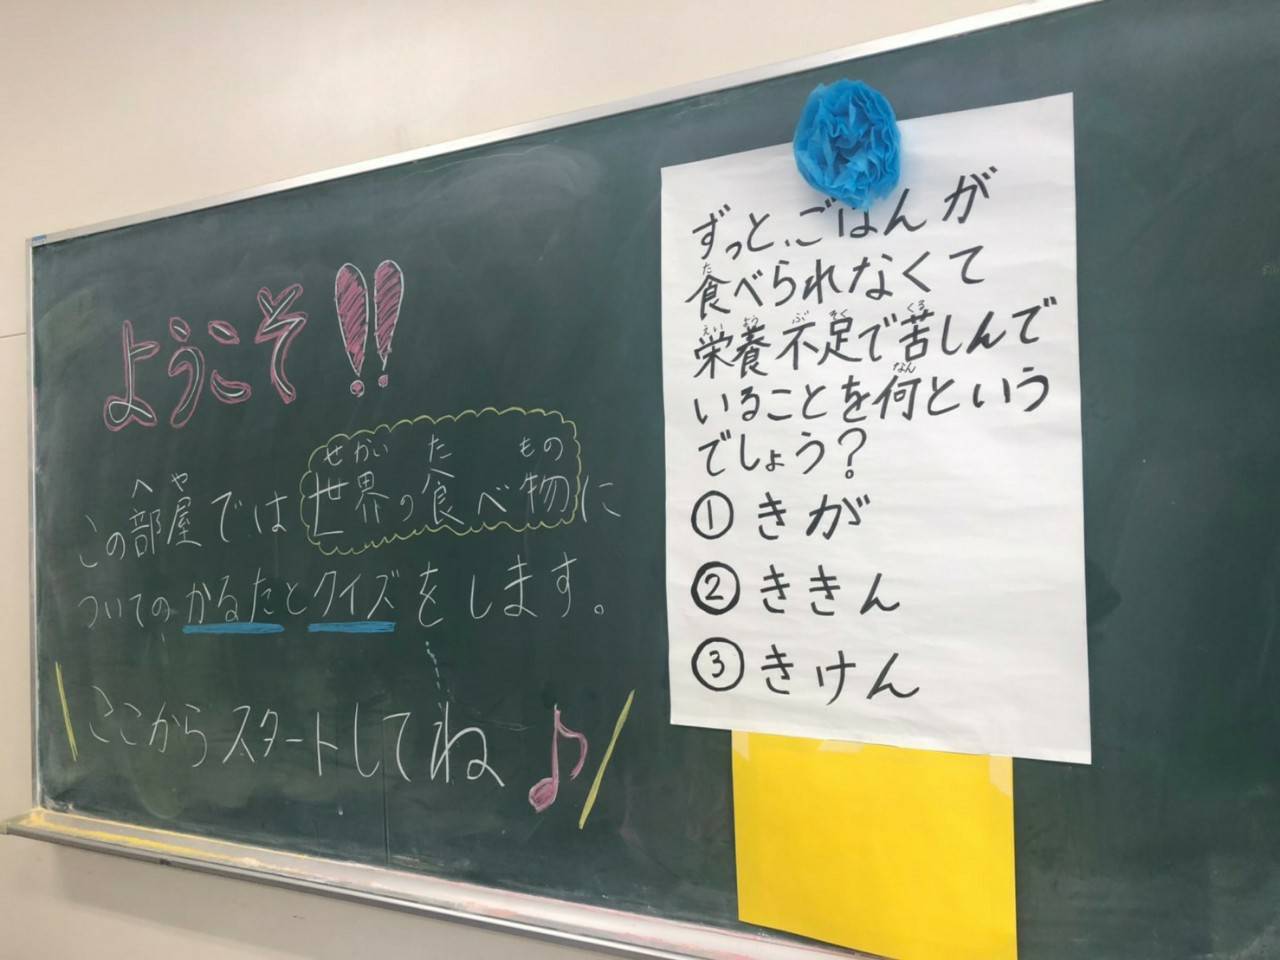 ようこそ!!
この部屋では世界の食べ物に
へや
せかい
た
もの
ついてのかるたとクイズをします。
ここからスタートしてね♪
ずっと、ごはんが
食べられなくて
た
栄養不足で苦しんで
えいよう
ぶそく
くる
いることを何という
なん
でしょう?
①きが
②ききん
③きけん